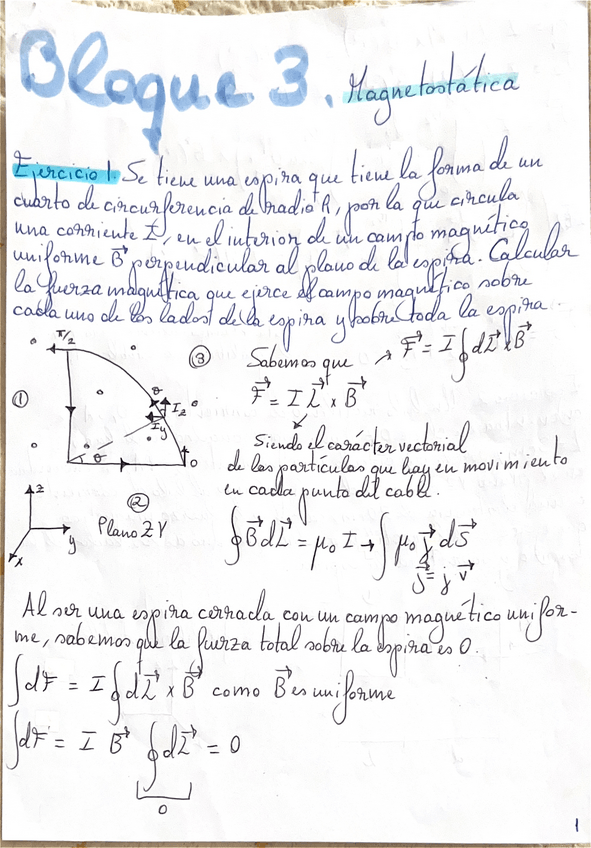 Bloque 3. Magnetostática
Ejercicio 1. Se tiene una espira que tiene la forma de un
cuarto de circunferencia de radio R, por la que circula
una corriente I, en el interior de un campo magnético
uniforme B⃗ perpendicular al plano de la espira. Calcular
la fuerza magnética que ejerce el campo magnético sobre
cada uno de los lados de la espira y sobre toda la espira.
π/2
③ Sabemos que → F⃗ = I ∮ dL⃗ x B⃗
① θ I_z
F⃗ = I L⃗ x B⃗
I_y
Siendo el carácter vectorial
de las partículas que hay en movimiento
θ 0
en cada punto del cable.
z
②
Plano ZY
y
x
∮ B⃗ dL⃗ = μ₀ I → ∫ μ₀ j⃗ dS⃗
j⃗ = j v⃗
Al ser una espira cerrada con un campo magnético unifor-
me, sabemos que la fuerza total sobre la espira es 0.
∫ dF = I ∮ dL⃗ x B⃗ como B⃗ es uniforme
∫ dF = I B⃗ ∮ dL⃗ = 0
0
1